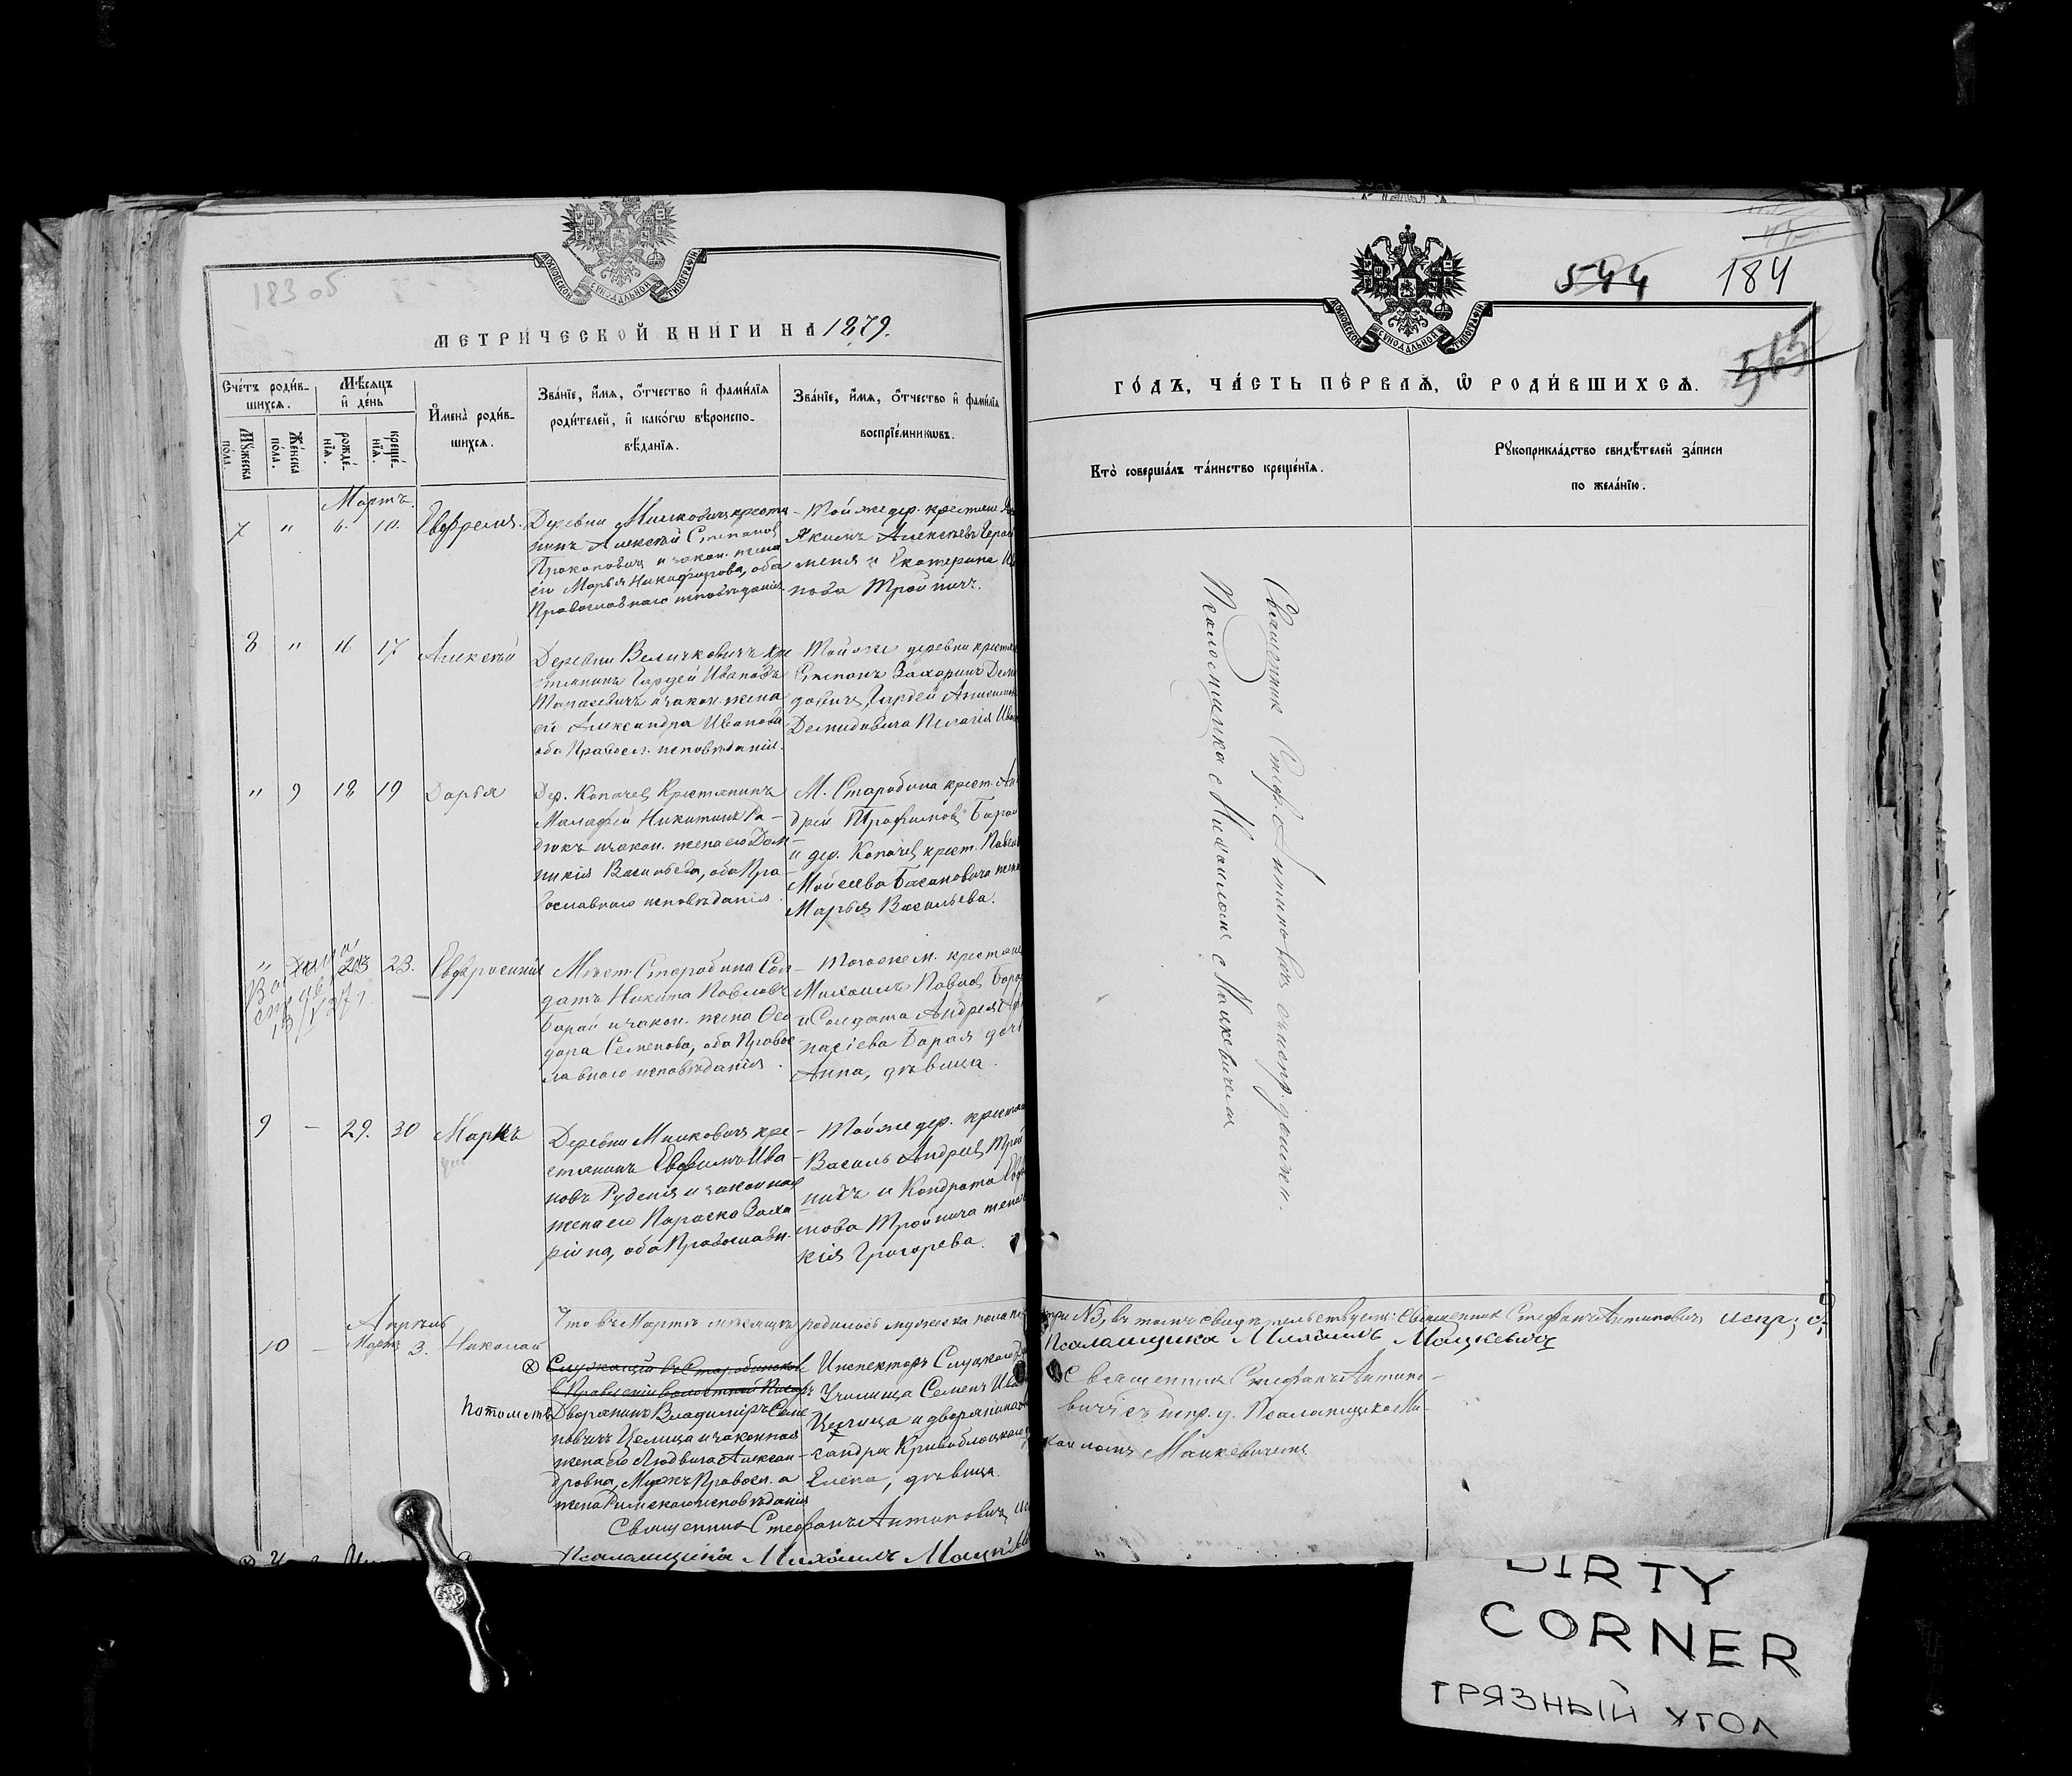 183 об
МОСКОВСКОЙ СѴНОДАЛЬНОЙ ТИПОГРАФІИ
МЕТРИЧЕСКОЙ КНИГИ НА 1879.
Счетъ родив-
шихся.
Мѣсяцъ
и день
Имена родив-
шихся.
Званіе, имя, отчество и фамилія
родителей, и какогѡ вѣроиспо-
вѣданія.
Званіе, имя, отчество и фамилія
воспріемникѡвъ.
Мꙋжеска
пола.
Женска
пола.
рожде-
нія.
креще-
нія.
Мартъ.
7 " 6. 10.
Деревни Милковичъ крестья
нинъ Алексѣй Степановъ
Прокоповичъ и закон. жена
его Марья Никифорова, оба
Православнаго исповѣданія
Той же дер. крестьяне
Якимъ Алексѣевъ
меня и Екатерина
нова Тройничъ.
8 " 16 17 Алексѣй
Деревни Величковичъ кре
стьянинъ Гордей Ивановъ
и закон. жена
его Александра Иванова
оба Правосл. исповѣданія.
Той же деревни крестья
Степанъ Захаринъ Деми
довичъ, Гордея
Демидовича Пелагія Ива
" 9 18 19 Дарья
Дер. Копачевъ Крестьянинъ
Малафей Никитинъ Ра-
дюкъ и закон. жена его Дом-
никія Васильева, оба Пра-
вославнаго исповѣданія.
М. Старобина крест. Ан
дрей Трофимовъ Барай
и дер. Копачевъ крест. Павла
Мойсеева Басановича жена
Марья Васильева.
" 23 23. Евфросинія
Мѣст. Старобина Сол-
датъ Никита Павловъ
Барай и закон. жена Ѳео
дора Семенова, оба Правос
лавнаго исповѣданія.
Тогоже м. крестьяне
Михаилъ Павловъ Бара
и Солдата Андрея
насіева Барая дочь
Анна, дѣвица.
9 – 29. 30 Маркъ
Деревни Милковичъ кре-
стьянинъ Евфимъ Ива-
новъ Руденя и законная
жена его Параска Заха
ріина, оба Православн.
Той же дер. крестья
Василь Андреевъ Трой
ничъ и Кондрата
мова Тройнича жена
кія Григорьева.
Апрѣль
10 – Мартъ 3. Николай
Что въ Мартѣ мѣсяцѣ родилось мужеска пола
Служащій въ Старобинском
Правленіи Волостной Писарь
Потомств. Дворянинъ Владиміръ Семе
новичъ Целица и законная
жена его Людвига Алексан-
дровна, Мужъ Правосл. а
жена Римскаго исповѣданія
Инспекторъ Слуцкаго
Училища Семенъ Ива
Целица и дворянина
сандра Кривоблоцкаго
Елена, дѣвица.
Священникъ Стефанъ Антиповичъ
Псаломщика Михаилъ Мацкев
544 184
МОСКОВСКОЙ СѴНОДАЛЬНОЙ ТИПОГРАФІИ
ГОДЪ, ЧАСТЬ ПЕРВАЯ, Ѡ РОДИВШИХСЯ.
Кто совершалъ таинство крещенія.
Рꙋкоприкладство свидѣтелей записи
по желанію.
Священникъ Стеф. Антиповичъ с испр. должн.
Псаломщика с Михаиломъ с Мацкевичемъ
при №3, въ томъ свидѣтельствуемъ: Священникъ Стефанъ Антиповичъ испр. д.
Псаломщика Михаилъ Мацкевичъ
Священникъ Стефанъ Антипо-
вичъ съ испр. д. Псаломщика Ми-
хаиломъ Мацкевичемъ
DIRTY
CORNER
ГРЯЗНЫЙ УГОЛ